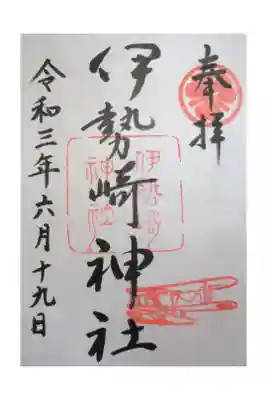 奉拝
伊勢崎神社
伊勢崎
神社
令和三年六月十九日